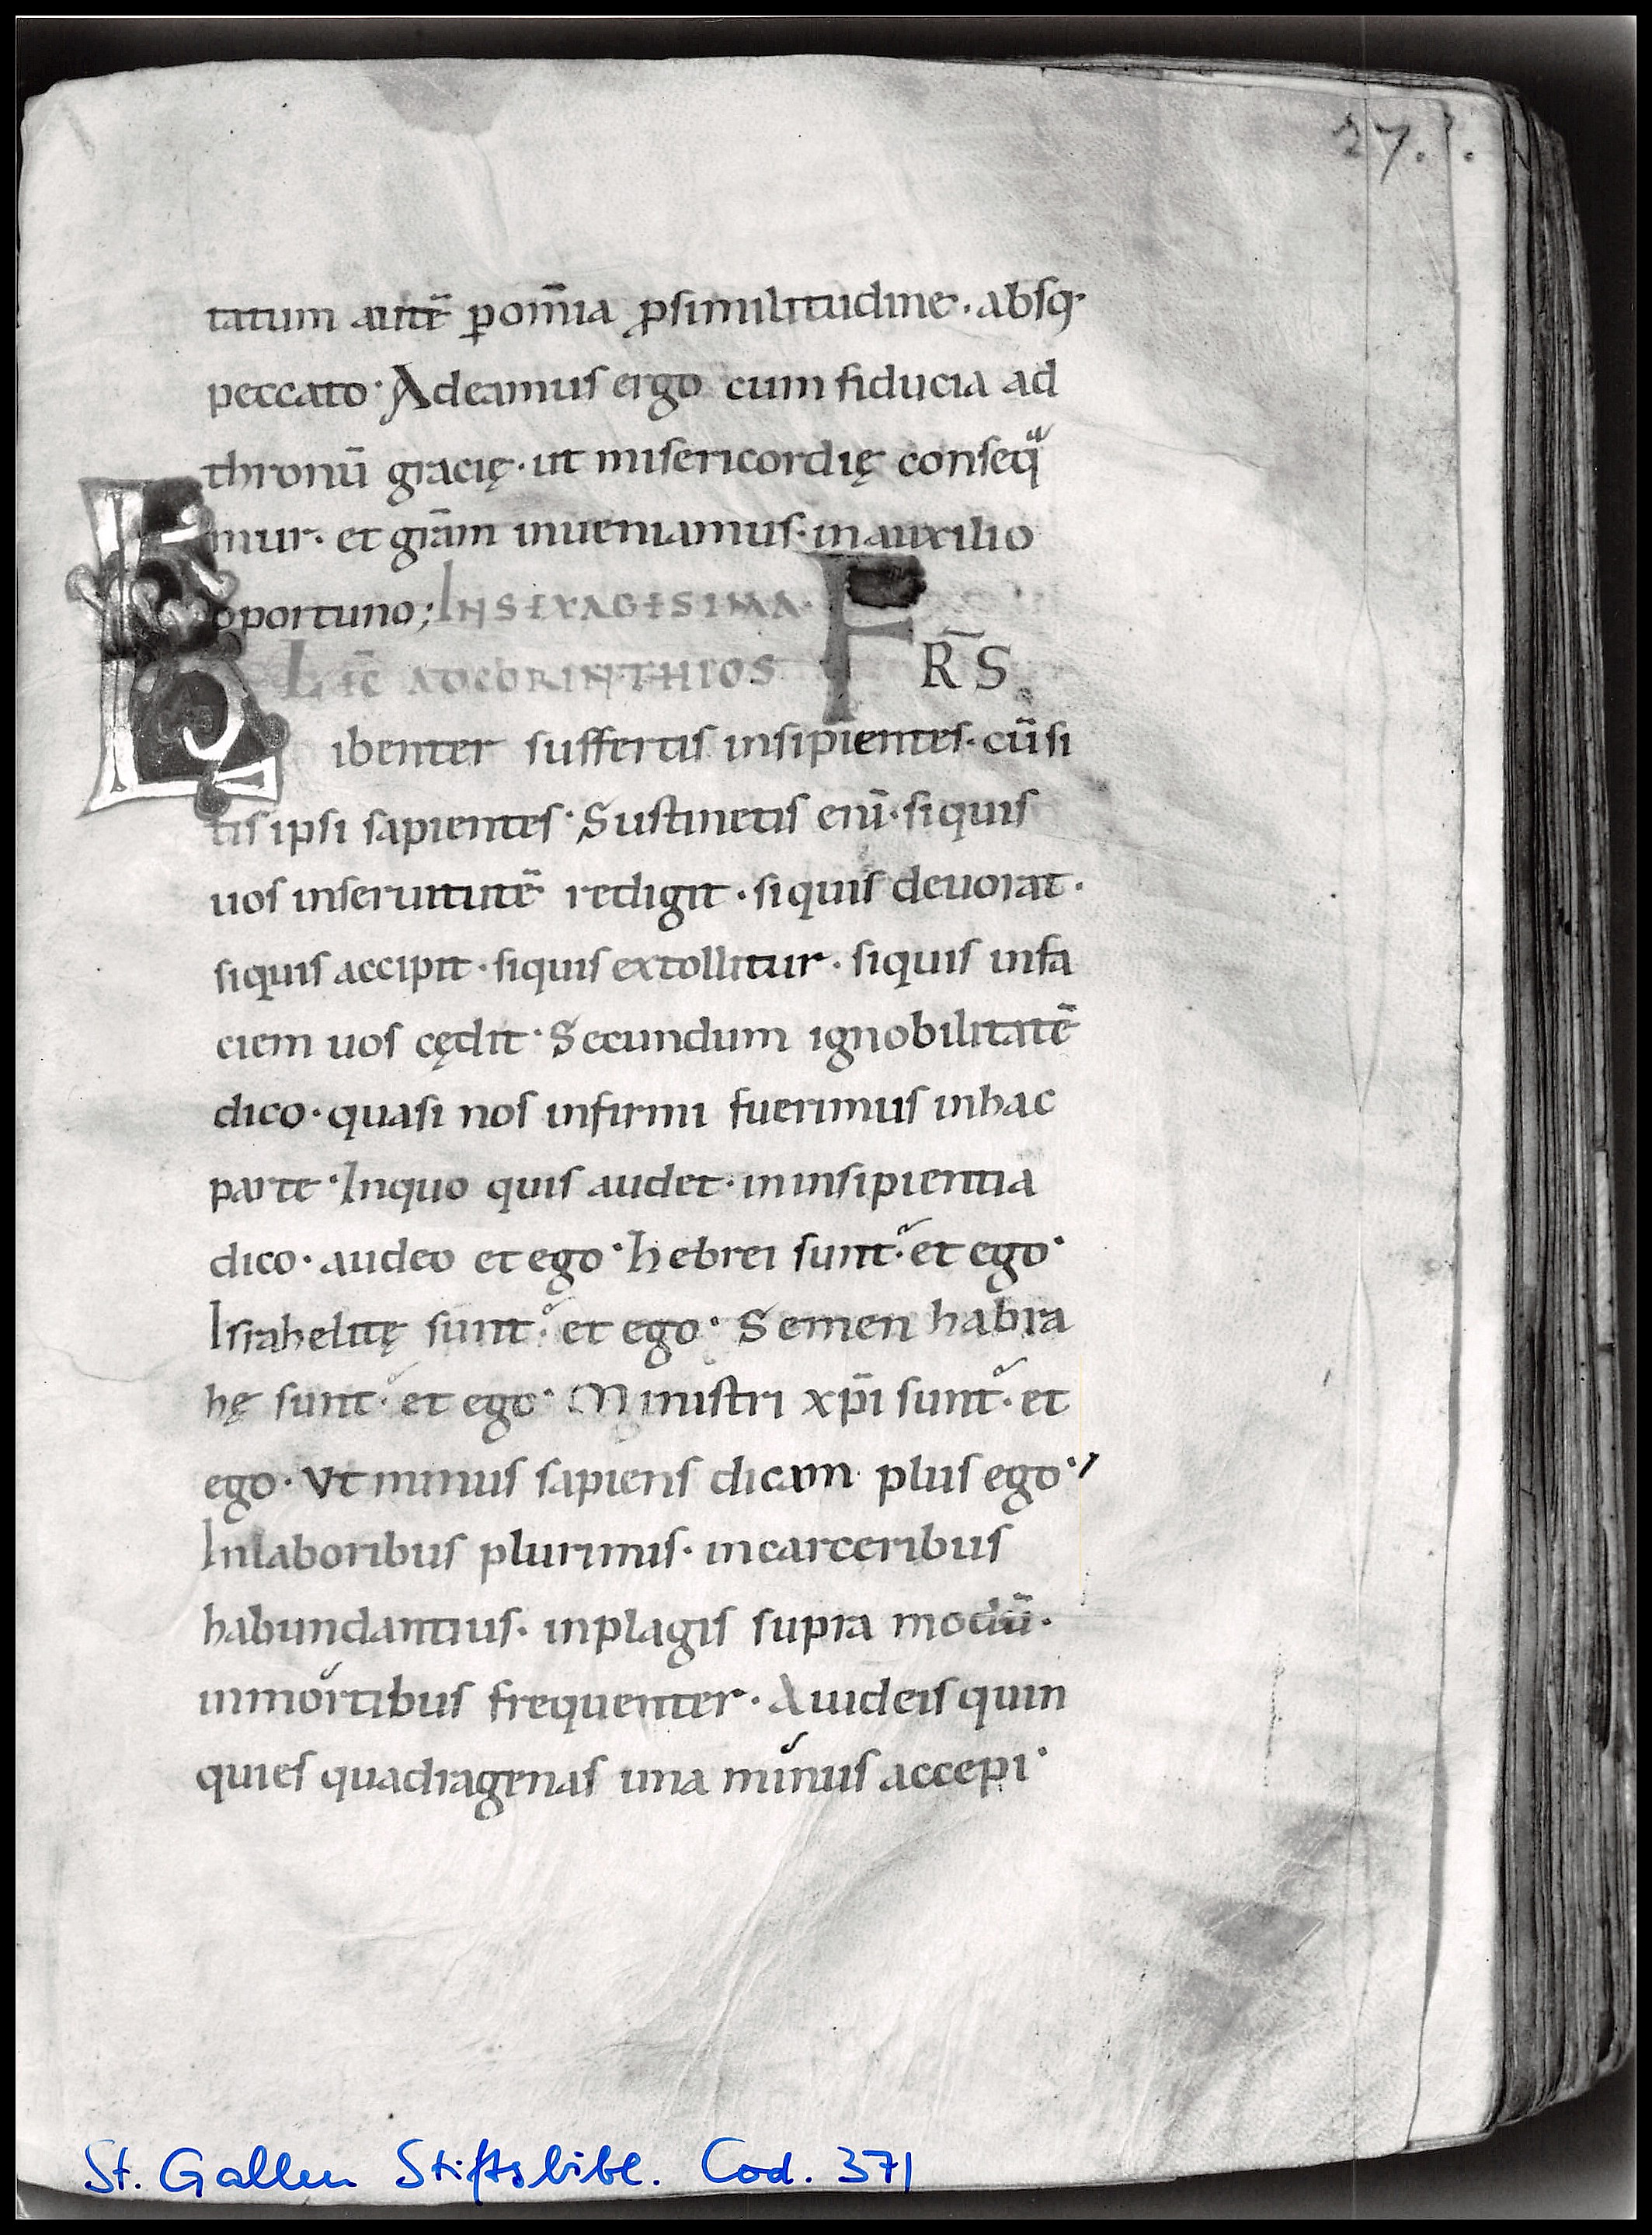 27.
tatum autē ꝑom̄ia ꝓsimilitudine· absq·
peccato· Adeamus ergo cum fiducia ad
thronū gracię· ut misericordię conseqͣ
mur· et grām inueniamus· inauxilio
oportuno; INSEXAGESIMA·
LEC̄ ADCORINTHIOS FR̄S
Libenter suffertis insipientes· cūsi
tis ipsi sapientes· Sustinetis enī· siquis
uos inseruitutē redigit· siquis deuorat·
siquis accipit· siquis extollitur· siquis infa
ciem uos cędit· Secundum ignobilitatē
dico· quasi nos infirmi fuerimus inhac
parte· Inquo quis audet· ininsipientia
dico· audeo et ego· hebrei sunt· et ego·
Israhelitę sunt· et ego· Semen habra
hę sunt· et ego· Ministri xp̄i sunt· et
ego· Vt minus sapiens dicam plus ego·
Inlaboribus plurimis· incarceribus
habundantius· inplagis supra modū·
inmortibus frequenter· Aiudeis quin
quies quadragenas una minus accepi·
St. Gallen Stiftsbibl. Cod. 371